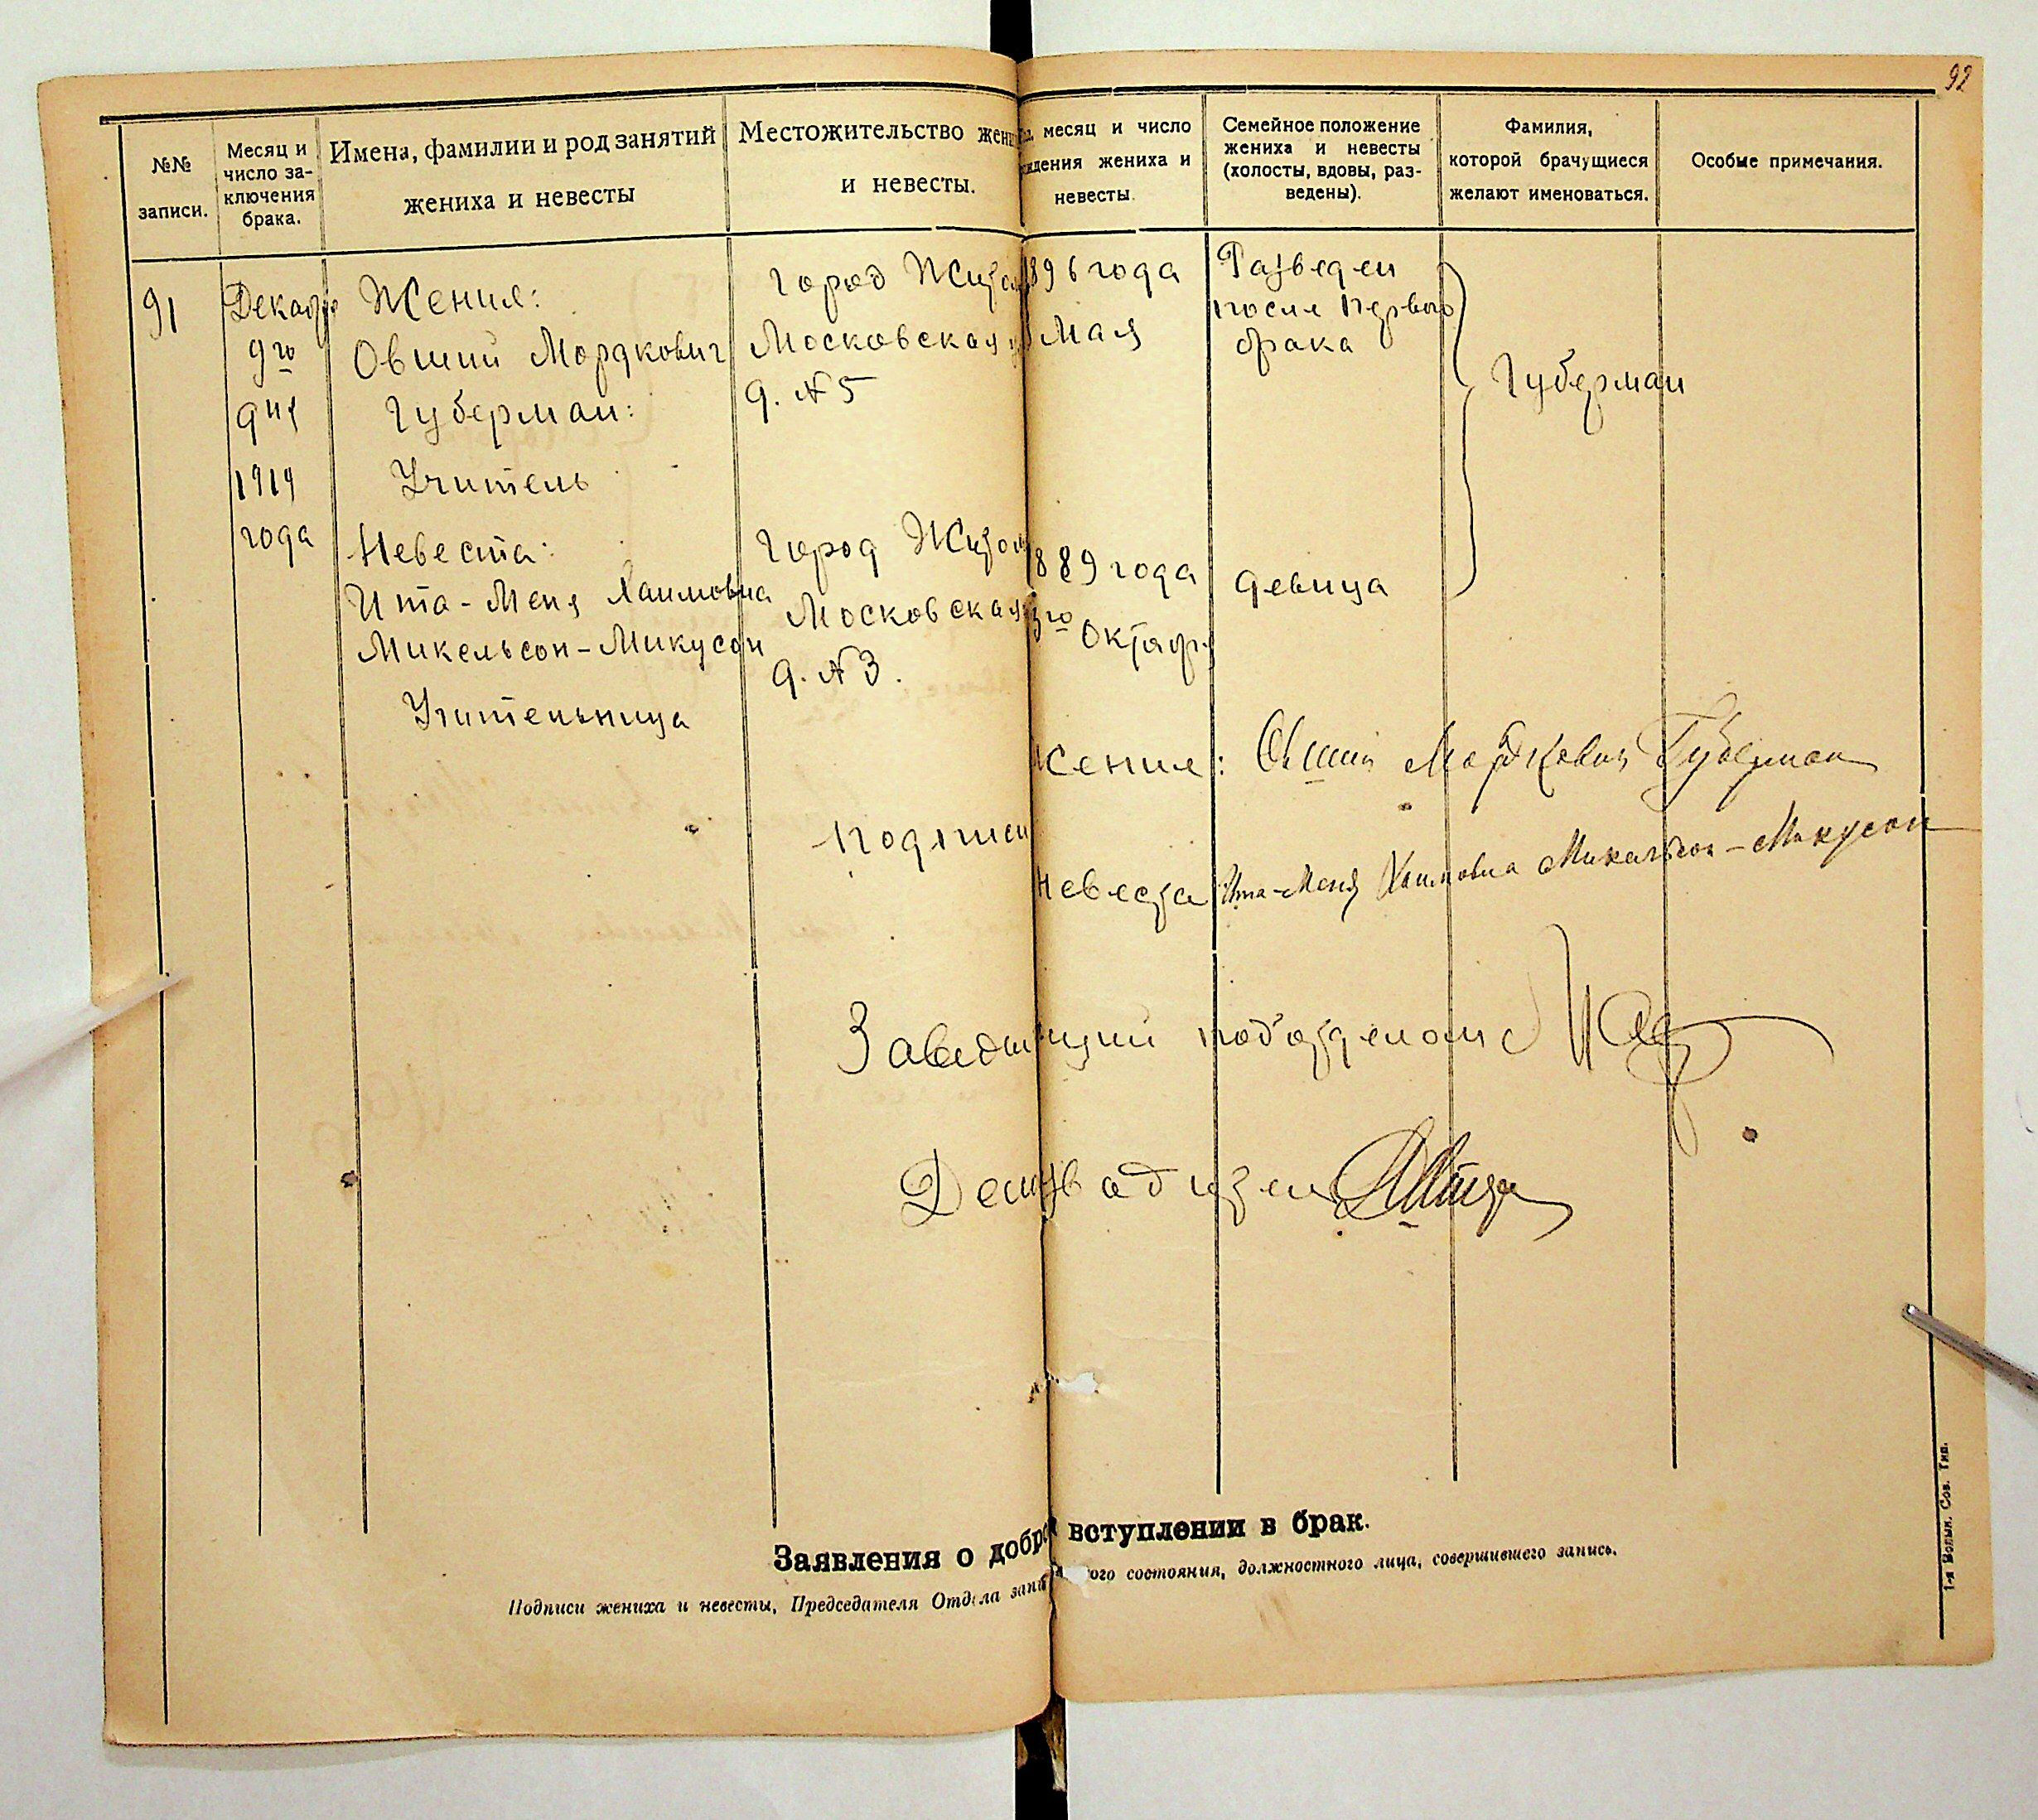 92
№№ записи.
Месяц и число за-
ключения брака.
Имена, фамилии и род занятий
жениха и невесты
Местожительство жени
и невесты.
месяц и число
ждения жениха и
невесты.
Семейное положение
жениха и невесты
(холосты, вдовы, раз-
ведены).
Фамилия,
которой брачущиеся
желают именоваться.
Особые примечания.
91
Декабр
9го
дня
1919
года
Жених:
Овший Мордкович
Губерман:
Учитель
Город Житом
Московская
д. №5
1896 года
мая
Разведен
после первого
брака
Губерман
Невеста:
Ита-Меня Хаимовна
Микельсон-Микусон
Учительница
Город Житом
Московская
д. №3.
1889 года
3го Октябр
девица
Жених: Овший Мордкович Губерман
Подписи
Невеста Ита-Меня Хаимовна Микельсон-Микусон
Заведющий подотделом
Делопроизв
Заявления о добро вступлении в брак.
Подписи жениха и невесты, Председателя Отдела запи ого состояния, должностного лица, совершившего запись.
1-я Волын. Сов. Тип.